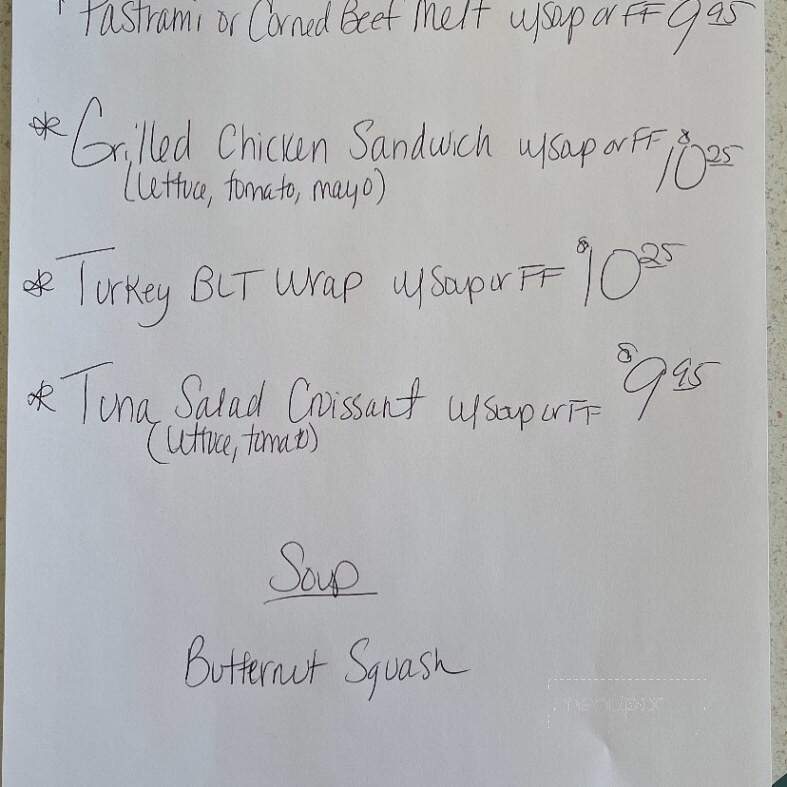 Pastrami or Corned Beef Melt w/soup or FF 9 95
* Grilled Chicken Sandwich w/soup or FF $10 25
(lettuce, tomato, mayo)
* Turkey BLT Wrap w/soup or FF $10 25
* Tuna Salad Croissant w/soup or FF $9 95
(lettuce, tomato)
Soup
Butternut Squash